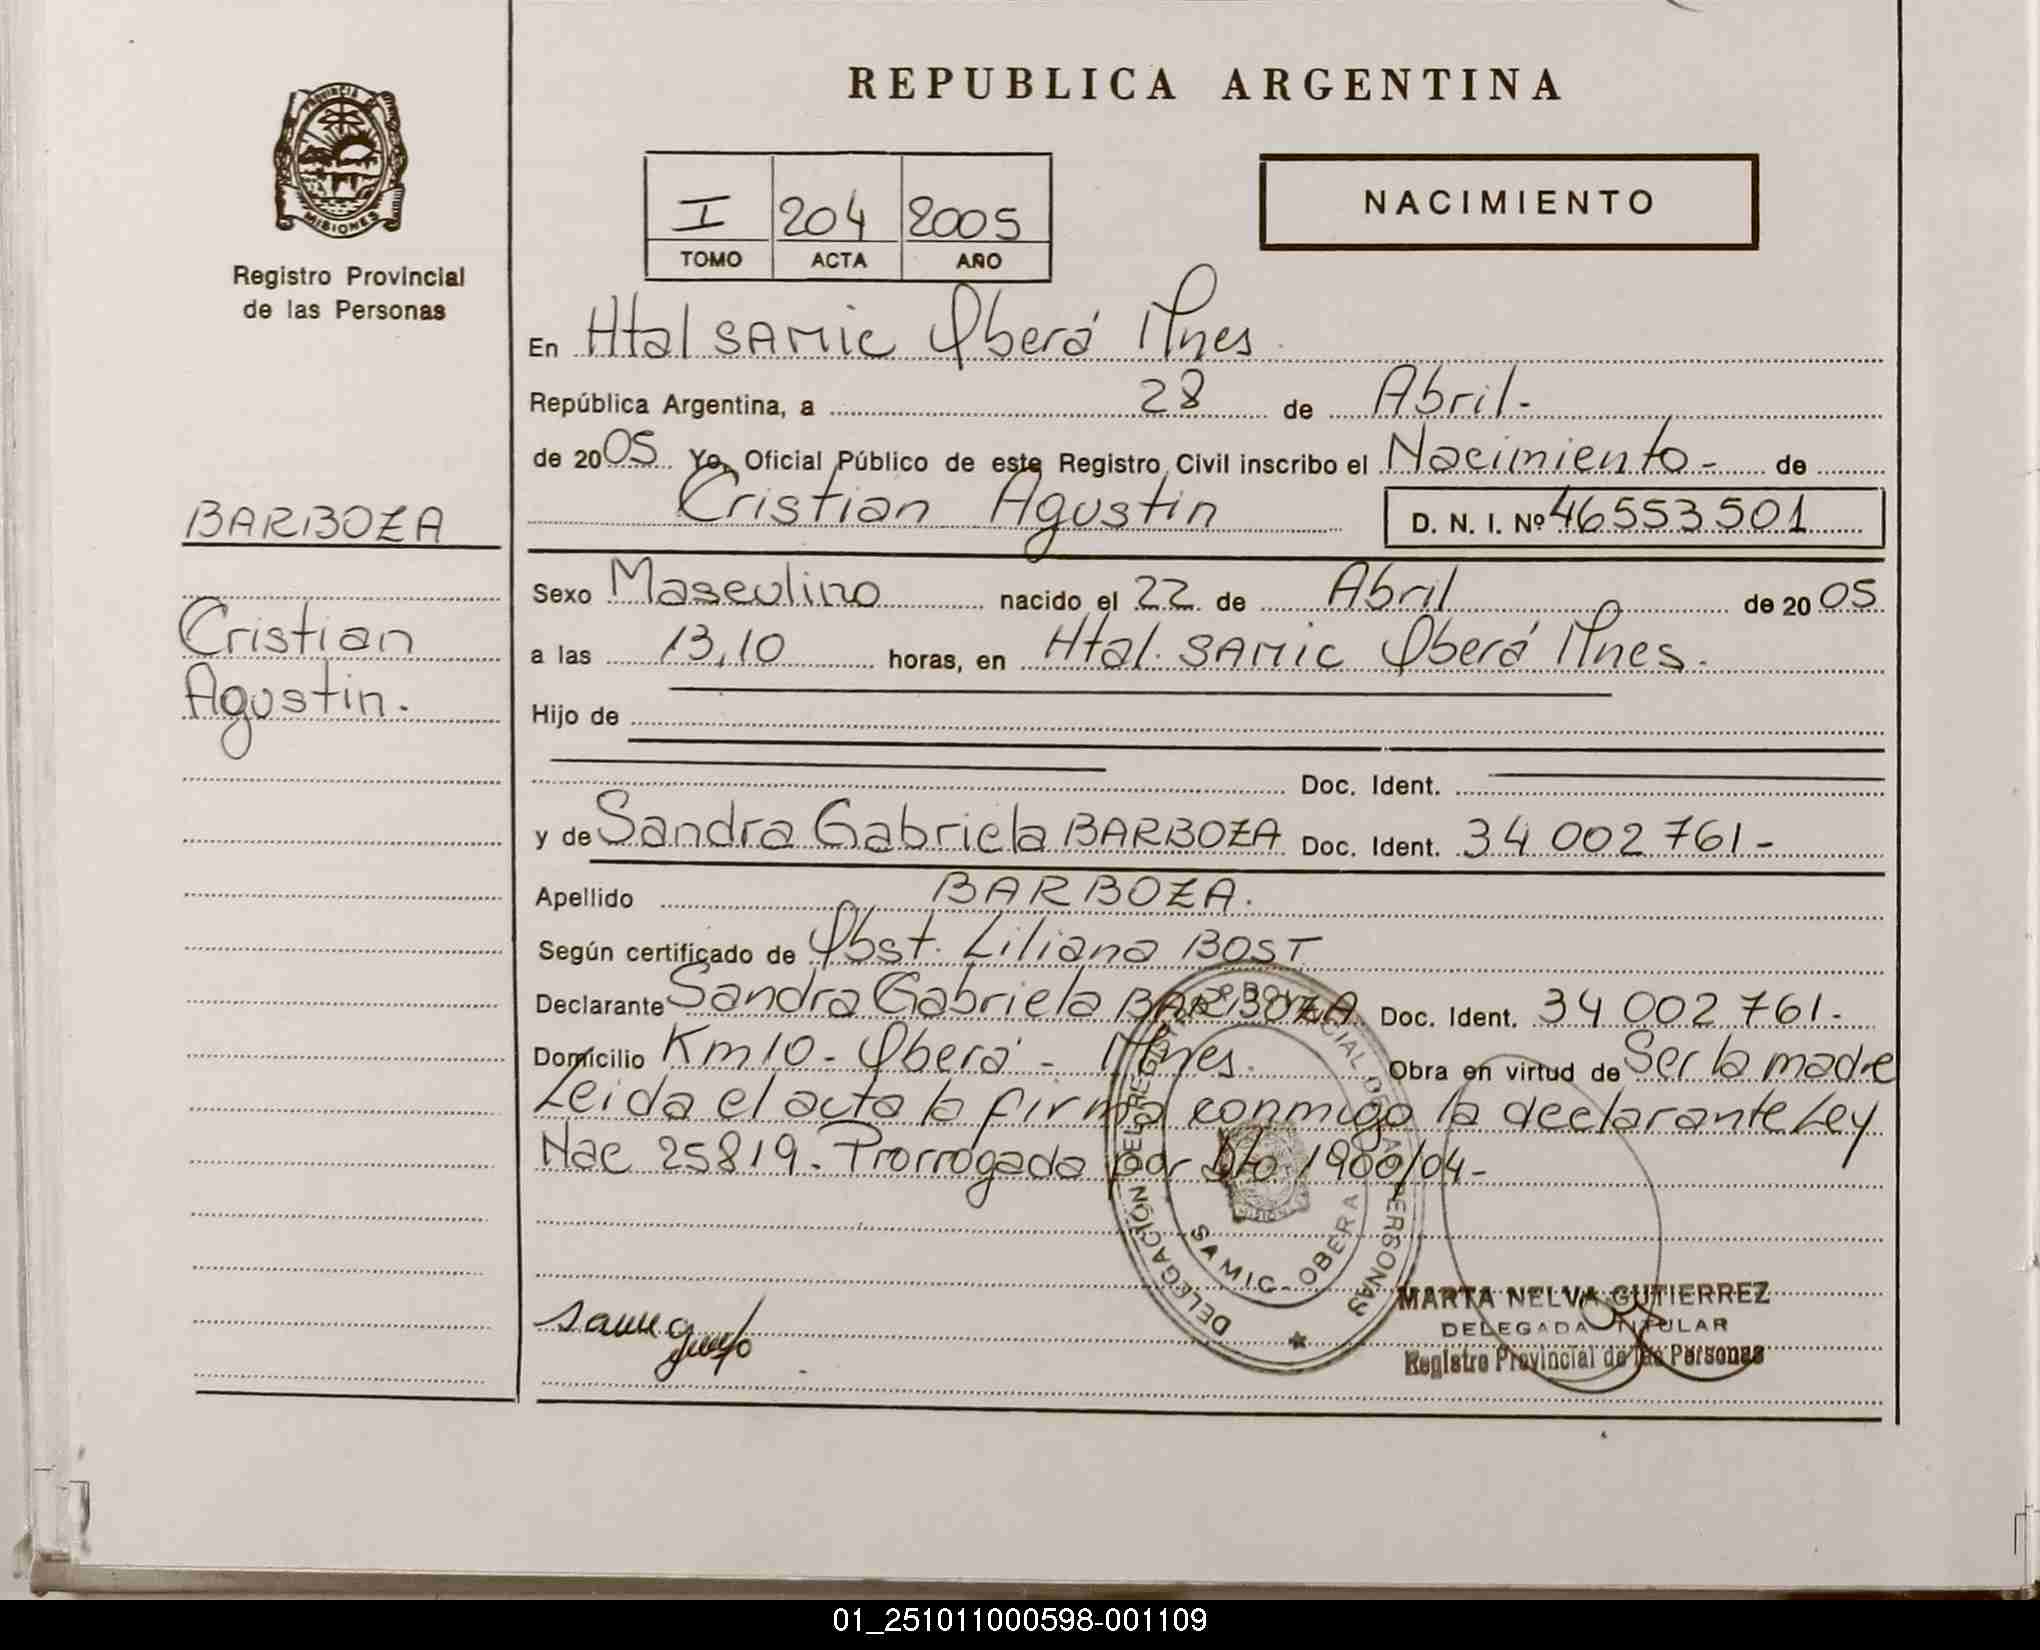 REPUBLICA ARGENTINA
PROVINCIA DE
MISIONES
Registro Provincial
de las Personas
I 204 2005
TOMO ACTA AÑO
NACIMIENTO
En Htal SAMIC Oberá Mnes
República Argentina, a 28 de Abril-
de 2005 Yo, Oficial Público de este Registro Civil inscribo el Nacimiento- de
Cristian Agustin D. N. I. Nº 46553501
BARBOZA
Cristian
Agustin.
Sexo Masculino nacido el 22 de Abril de 2005
a las 13,10 horas, en Htal. SAMIC Oberá Mnes.
Hijo de
Doc. Ident.
y de Sandra Gabriela BARBOZA Doc. Ident. 34 002 761-
Apellido BARBOZA.
Según certificado de Obst. Liliana BOST
Declarante Sandra Gabriela BARBOZA Doc. Ident. 34 002 761-
Domicilio Km10- Oberá - Mnes. Obra en virtud de Ser la madre
Leida el acta la firma conmigo la declarante Ley
Nac 25819. Prorrogada por Dto 1900/04-
DELEGACIÓN DEL REGISTRO PROVINCIAL DE LAS PERSONAS
SAMIC - OBERA
MARTA NELVA GUTIERREZ
DELEGADA TITULAR
Registro Provincial de las Personas
01_251011000598-001109